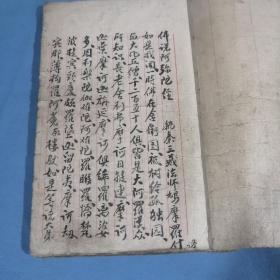 佛說阿弥陀經
姚秦三藏法師鳩摩羅什譯
如是我聞一時佛在舍衛國祇樹給孤独園
與大比丘僧千二百五十人俱皆是大阿羅漢衆
所知識長老舍利弗摩訶目揵連摩訶
迦葉摩訶迦旃延摩訶俱絺羅離婆
多周利槃陀伽難陀阿難陀羅睺羅憍梵
波提賓頭盧頗羅堕迦留陀夷摩訶劫
賓那薄拘羅阿㝹楼馱如是等諸大弟